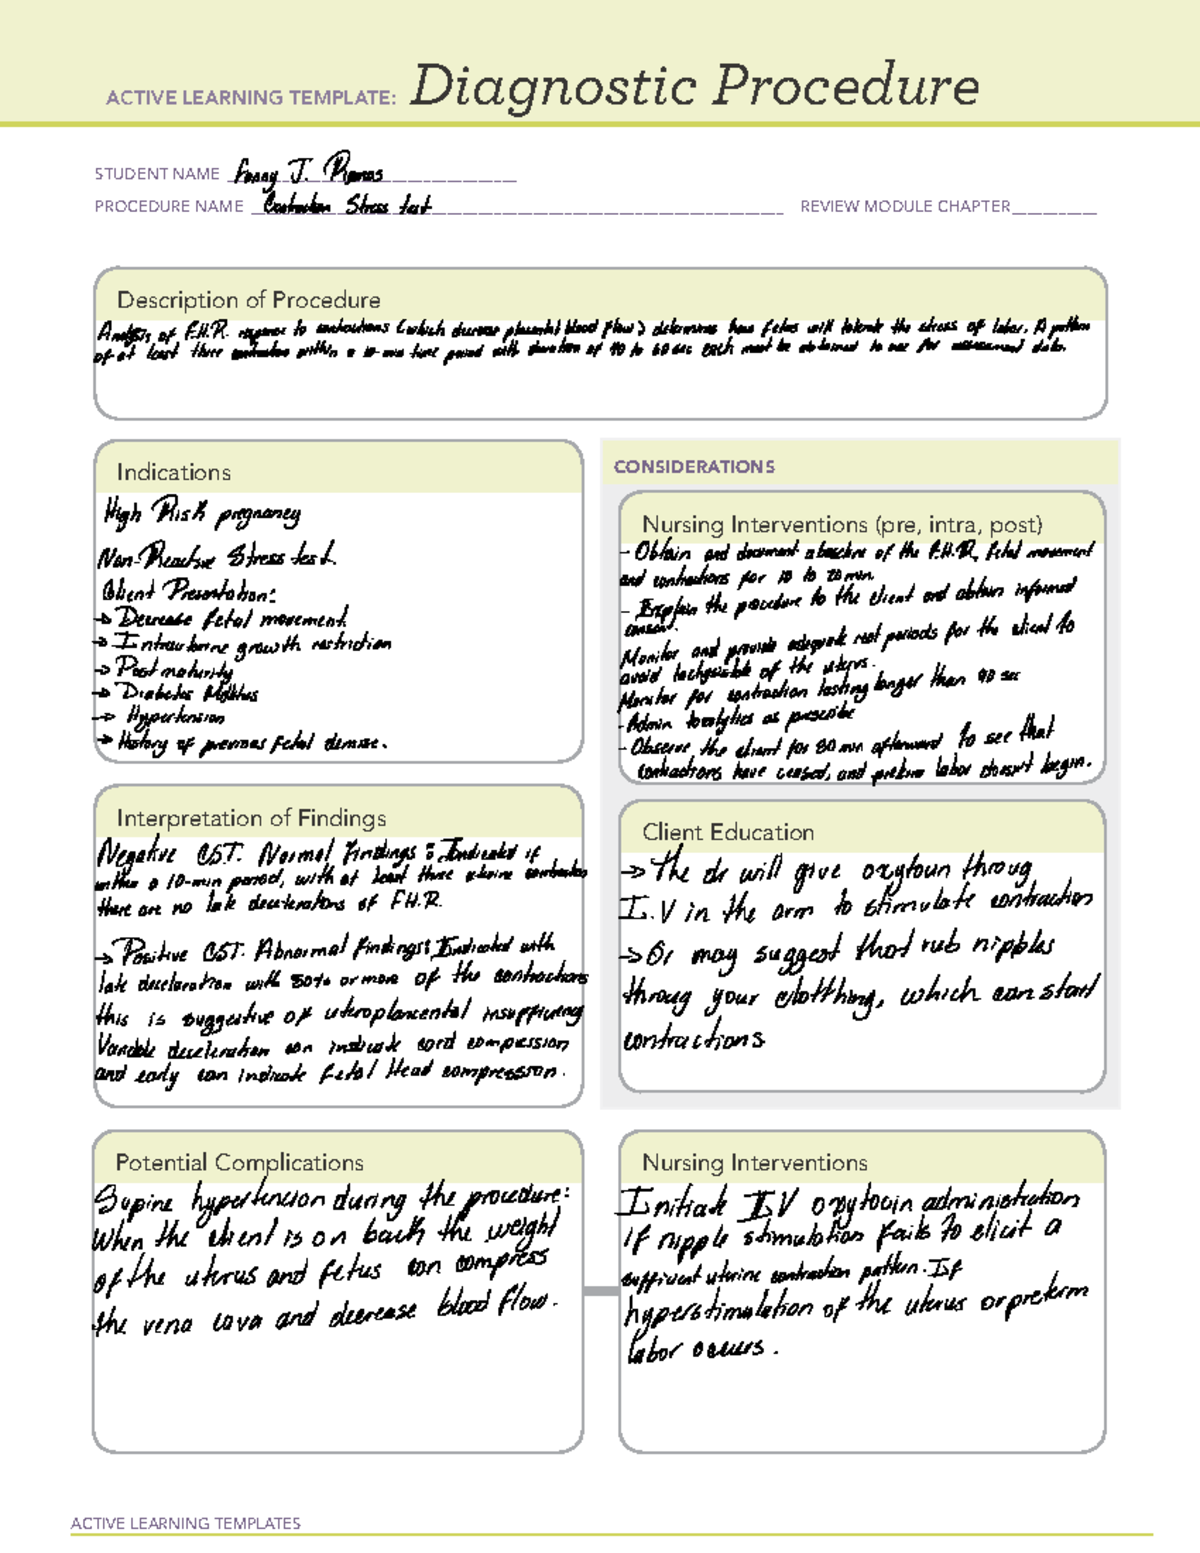 ACTIVE LEARNING TEMPLATE: Diagnostic Procedure
STUDENT NAME J. Ramos
PROCEDURE NAME Contraction Stress test REVIEW MODULE CHAPTER
Description of Procedure
Analysis of F.H.R. response to contractions (which decrease placental blood flow) determines how fetus will tolerate the stress of labor. A pattern
of at least three contraction within a 10-min time period with duration of 40 to 60 sec each must be obtained to use for assessment data.
Indications
High Risk pregnancy
Non-Reactive Stress test.
Client Presentation:
→ Decrease fetal movement
→ Intrauterine growth restriction
→ Postmaturity
→ Diabetes Mellitus
→ Hypertension
→ History of previous fetal demise.
CONSIDERATIONS
Nursing Interventions (pre, intra, post)
- Obtain and document a baseline of the F.H.R, fetal movement
and contractions for 10 to 20 min.
- Explain the procedure to the client and obtain informed
consent.
Monitor and provide adequate rest periods for the client to
avoid of the uterus.
Monitor for contraction lasting longer than 90 sec
- Admin tocolytics as prescribe
- Observe the client for 30 min afterward to see that
contractions have ceased, and preterm labor doesn't begin.
Interpretation of Findings
Negative CST. Normal Findings: Indicated if
within a 10-min period, with at least three uterine contraction
there are no late decelerations of F.H.R.
→ Positive CST. Abnormal findings: Indicated with
late deceleration with 50% or more of the contractions
this is suggestive of uteroplancental insufficiency
Variable deceleration can indicate cord compression
and early can indicate fetal Head compression.
Client Education
→ The dr will give oxytoun throug
I.V in the arm to stimulate contraction
→ Or may suggest that rub nipples
throug your clotthing, which can start
contractions
Potential Complications
Supine hypertencion during the procedure:
When the client is on back the weight
of the uterus and fetus can compress
the vena cava and decrease blood flow.
Nursing Interventions
Initiate IV oxytocin administration
if nipple stimulation fails to elicit a
sufficient uterine contraction pattern. If
hyperstimulation of the uterus or preterm
labor occurs.
ACTIVE LEARNING TEMPLATES